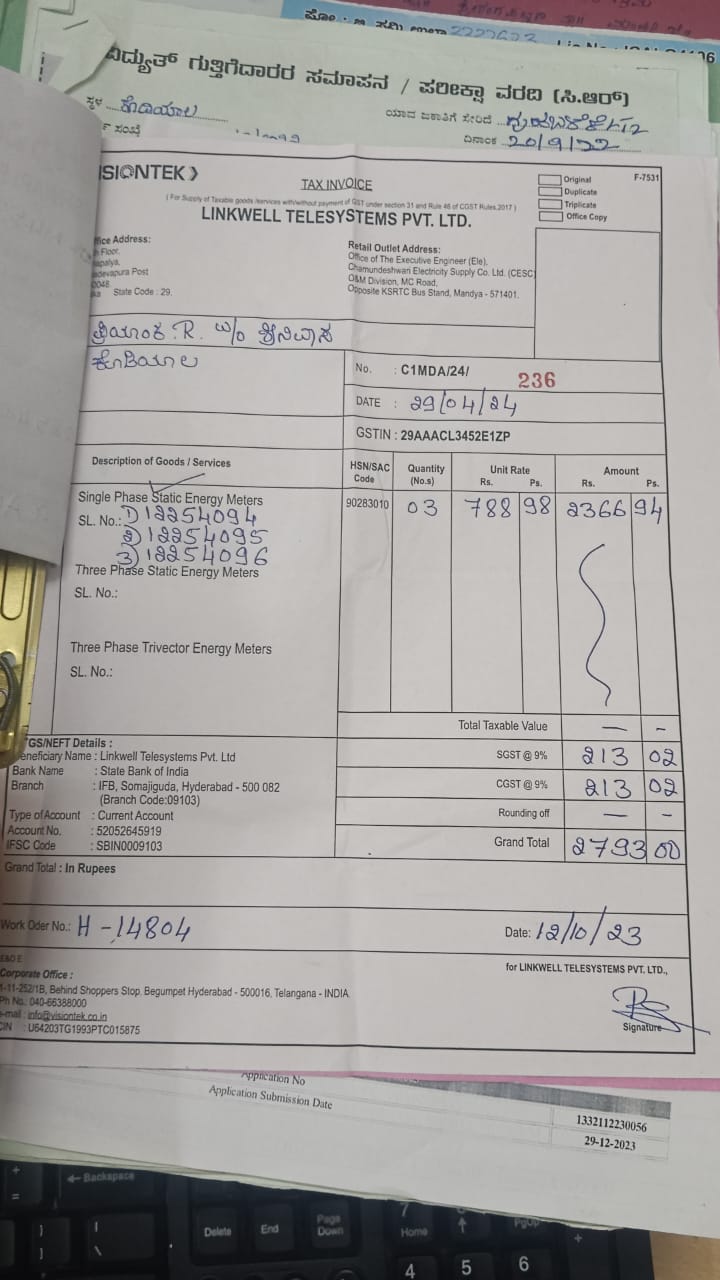 ವಿದ್ಯುತ್ ಗುತ್ತಿಗೆದಾರರ ಸಮಾಪನ / ಪರೀಕ್ಷಾ ವರದಿ (ಸಿ.ಆರ್)
ಸ್ಥಳ ಕೊಡಿಯಾಲ
ಯಾವ ಜಕಾತಿಗೆ ಸೇರಿದೆ
ಸಂಖ್ಯೆ
ದಿನಾಂಕ 20/9/22
ISIONTEK
TAX INVOICE
F-7531
Original
Duplicate
Triplicate
Office Copy
( For Supply of Taxable goods /services with/without payment of GST under section 31 and Rule 46 of CGST Rules,2017 )
LINKWELL TELESYSTEMS PVT. LTD.
fice Address:
Floor,
apalya,
adevapura Post
0048.
ka State Code : 29.
Retail Outlet Address:
Office of The Executive Engineer (Ele),
Chamundeshwari Electricity Supply Co. Ltd. (CESC
O&M Division, MC Road,
Opposite KSRTC Bus Stand, Mandya - 571401.
ಪ್ರಿಯಾಂಕ .R. w/o ಶ್ರೀನಿವಾಸ
ಕೊಡಿಯಾಲ
No. : C1MDA/24/ 236
DATE : 29/04/24
GSTIN : 29AAACL3452E1ZP
Description of Goods / Services HSN/SAC Code Quantity (No.s) Unit Rate Rs. Ps. Amount Rs. Ps.
Single Phase Static Energy Meters 90283010 03 788 98 2366 94
SL. No.: 1) 12254094
2) 12254095
3) 12254096
Three Phase Static Energy Meters
SL. No.:
Three Phase Trivector Energy Meters
SL. No.:
Total Taxable Value — -
SGST @ 9% 213 02
CGST @ 9% 213 02
Rounding off — -
Grand Total 2793 00
GS/NEFT Details :
eneficiary Name : Linkwell Telesystems Pvt. Ltd
Bank Name : State Bank of India
Branch : IFB, Somajiguda, Hyderabad - 500 082
(Branch Code:09103)
Type of Account : Current Account
Account No. : 52052645919
IFSC Code : SBIN0009103
Grand Total : In Rupees
Work Oder No.: H - 14804
Date: 12/10/23
E&O E
Corporate Office :
1-11-252/1B, Behind Shoppers Stop, Begumpet Hyderabad - 500016, Telangana - INDIA
Ph No.: 040-66388000
e-mail : info@visiontek.co.in
CIN : U64203TG1993PTC015875
for LINKWELL TELESYSTEMS PVT. LTD.,
Signature
Application No 1332112230056
Application Submission Date 29-12-2023
Backspace
Delete
End
Page Down
7 Home
PgUp
4
5
6